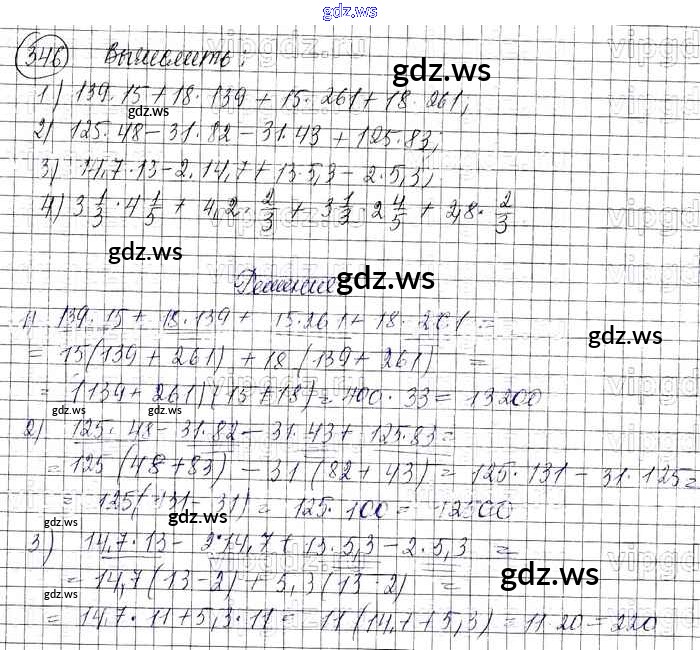 gdz.ws
346 Вычислить:
gdz.ws
1) 139·15+18·139+15·261+18·261;
gdz.ws
2) 125·48-31·82-31·43+125·83;
3) 14,7·13-2·14,7+13·5,3-2·5,3;
4) 3 1/3 · 4 1/5 + 4,2 · 2/3 + 3 1/3 · 2 4/5 + 2,8 · 2/3
gdz.ws
Решение
gdz.ws
1) 139·15+18·139+15·261+18·261=
gdz.ws
= 15(139+261)+18(139+261) =
= (139+261)(15+18)=400·33=13200
gdz.ws gdz.ws
2) 125·48-31·82-31·43+125·83=
= 125(48+83)-31(82+43)=125·131-31·125=
= 125(131-31)= 125·100= 12500
gdz.ws
3) 14,7·13-2·14,7+13·5,3-2·5,3 =
= 14,7(13-2)+5,3(13-2) =
gdz.ws gdz.ws
= 14,7·11+5,3·11= 11(14,7+5,3)=11·20=220
gdz.ws